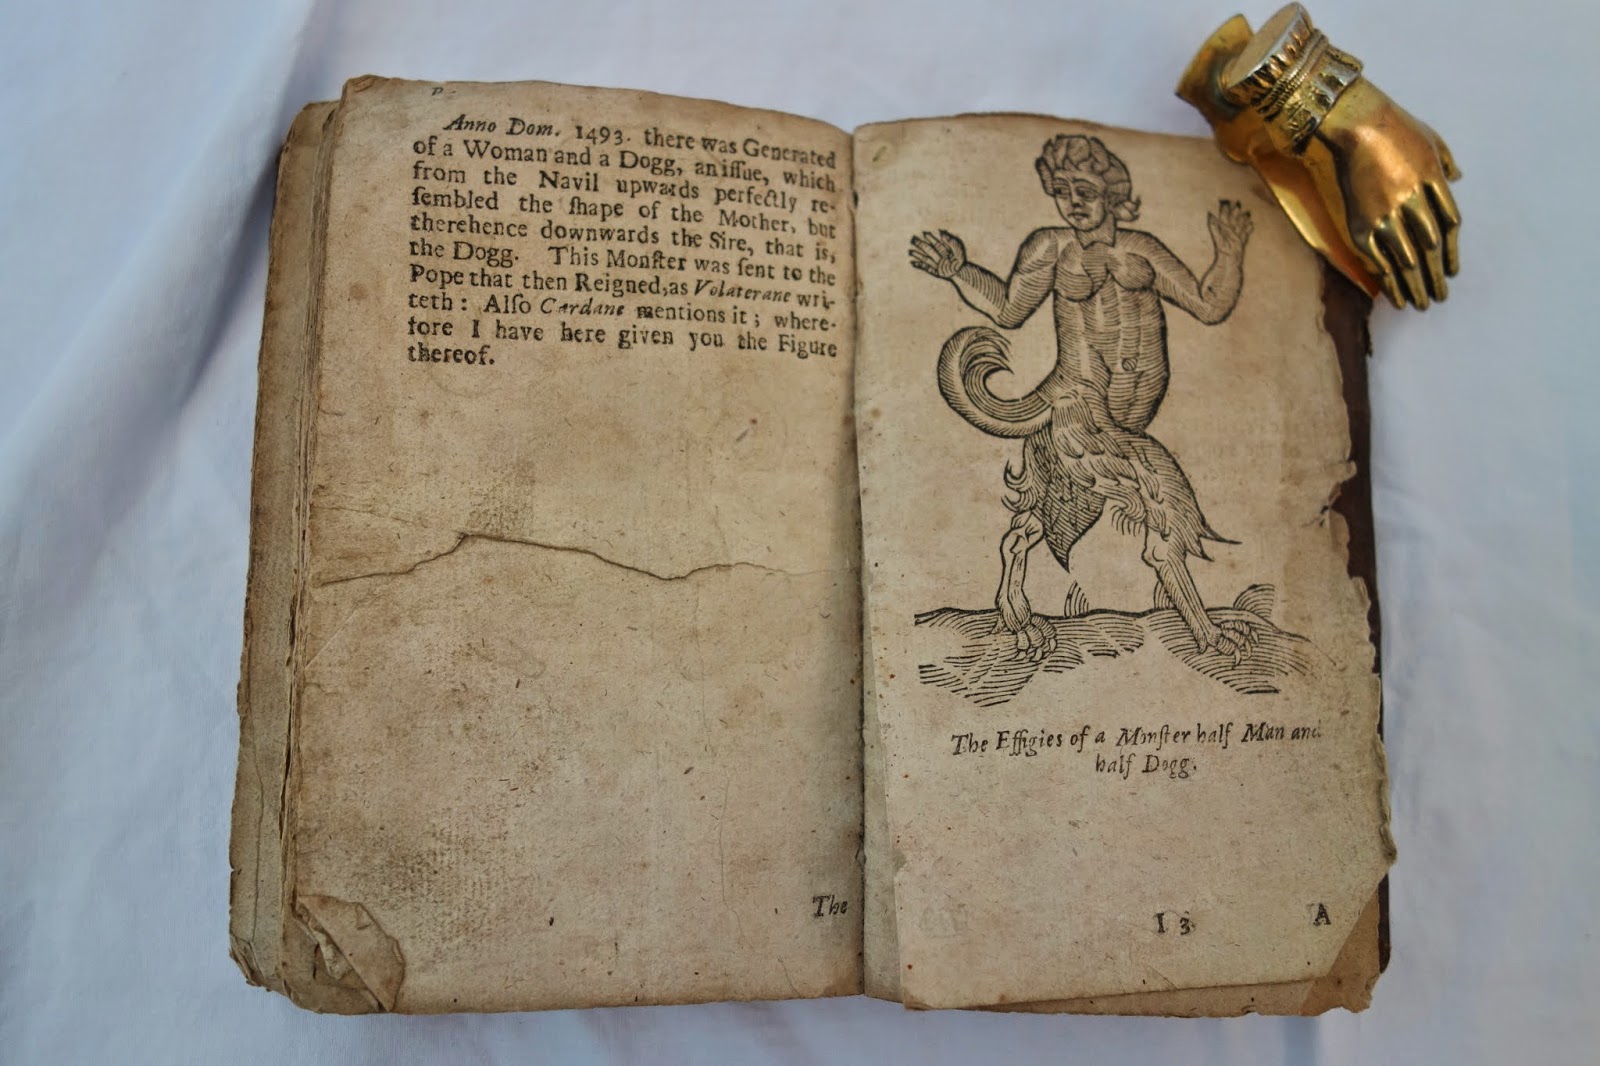 Anno Dom. 1493. there was Generated
of a Woman and a Dogg, an iſſue, which
from the Navil upwards perfectly re-
ſembled the ſhape of the Mother, but
therehence downwards the Sire, that is,
the Dogg. This Monſter was ſent to the
Pope that then Reigned, as Volaterane wri-
teth: Alſo Cardane mentions it; where-
fore I have here given you the Figure
thereof.
The
The Effigies of a Monſter half Man and
half Dogg.
I 3
A